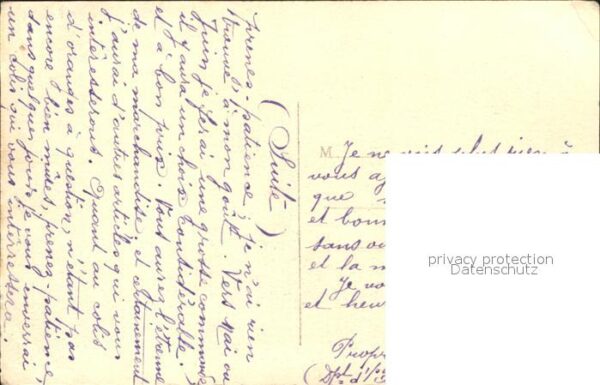 (Suite)
prenez-patience, je n'ai rien
trouvé à mon goût. Vers Mai ou
Juin je ferai une grosse commande
il y aura un choix considérable
et à bon prix. Vous aurez l'étrenne
de ma marchandise et certainement
j'aurai d'autres articles qui vous
intéresseront. Quant au colis
d'oranges à question, n'étant pas
encore bien mûres, prenez-patience,
dans quelques jours je vous enverrai
un colis où vous intéressera.
M
Je ne vois plus rien à
vous a
que
et bonn
sans ou
et la m
Je vo
et heur
Propr
(Dpt d'
privacy protection
Datenschutz